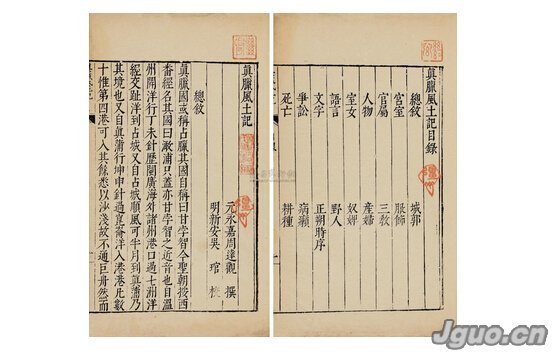 眞臘風土記目錄
總敘 城郭
宮室 服飾
官屬 三教
人物 產婦
室女 奴婢
語言 野人
文字 正朔時序
爭訟 病癩
死亡 耕種
眞臘風土記
元永嘉周達觀 撰
明新安吳琯 校
總敘
眞臘國或稱占臘其國自稱曰甘孛智今聖朝按西
番經名其國曰澉浦只蓋亦甘孛智之近音也自溫
州開洋行丁未針歷閩廣海外諸州港口過七洲洋
經交趾洋到占城又自占城順風可半月到眞蒲乃
其境也又自眞蒲行坤申針過崑崙洋入港港凡數
十惟第四港可入其餘悉以沙淺故不通巨舟然而
Jguo.cn